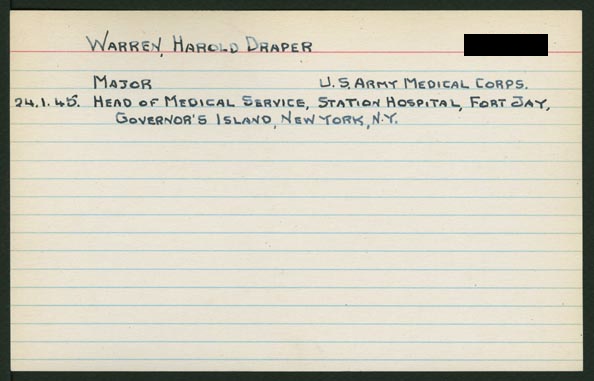 WARREN, HAROLD DRAPER
MAJOR U.S. ARMY MEDICAL CORPS.
24.1.45. HEAD OF MEDICAL SERVICE, STATION HOSPITAL, FORT JAY,
GOVERNOR'S ISLAND, NEW YORK, N.Y.